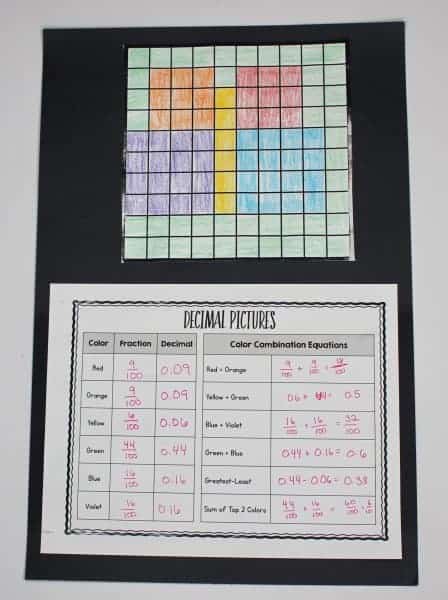 DECIMAL PICTURES
Color Fraction Decimal
Red 9/100 0.09
Orange 9/100 0.09
Yellow 6/100 0.06
Green 44/100 0.44
Blue 16/100 0.16
Violet 16/100 0.16
Color Combination Equations
Red + Orange 9/100 + 9/100 = 18/100
Yellow + Green .06 + .44 = 0.5
Blue + Violet 16/100 + 16/100 = 32/100
Green + Blue 0.44 + 0.16 = 0.6
Greatest-Least 0.44 - 0.06 = 0.38
Sum of Top 2 Colors 44/100 + 16/100 = 60/100 = 6/10